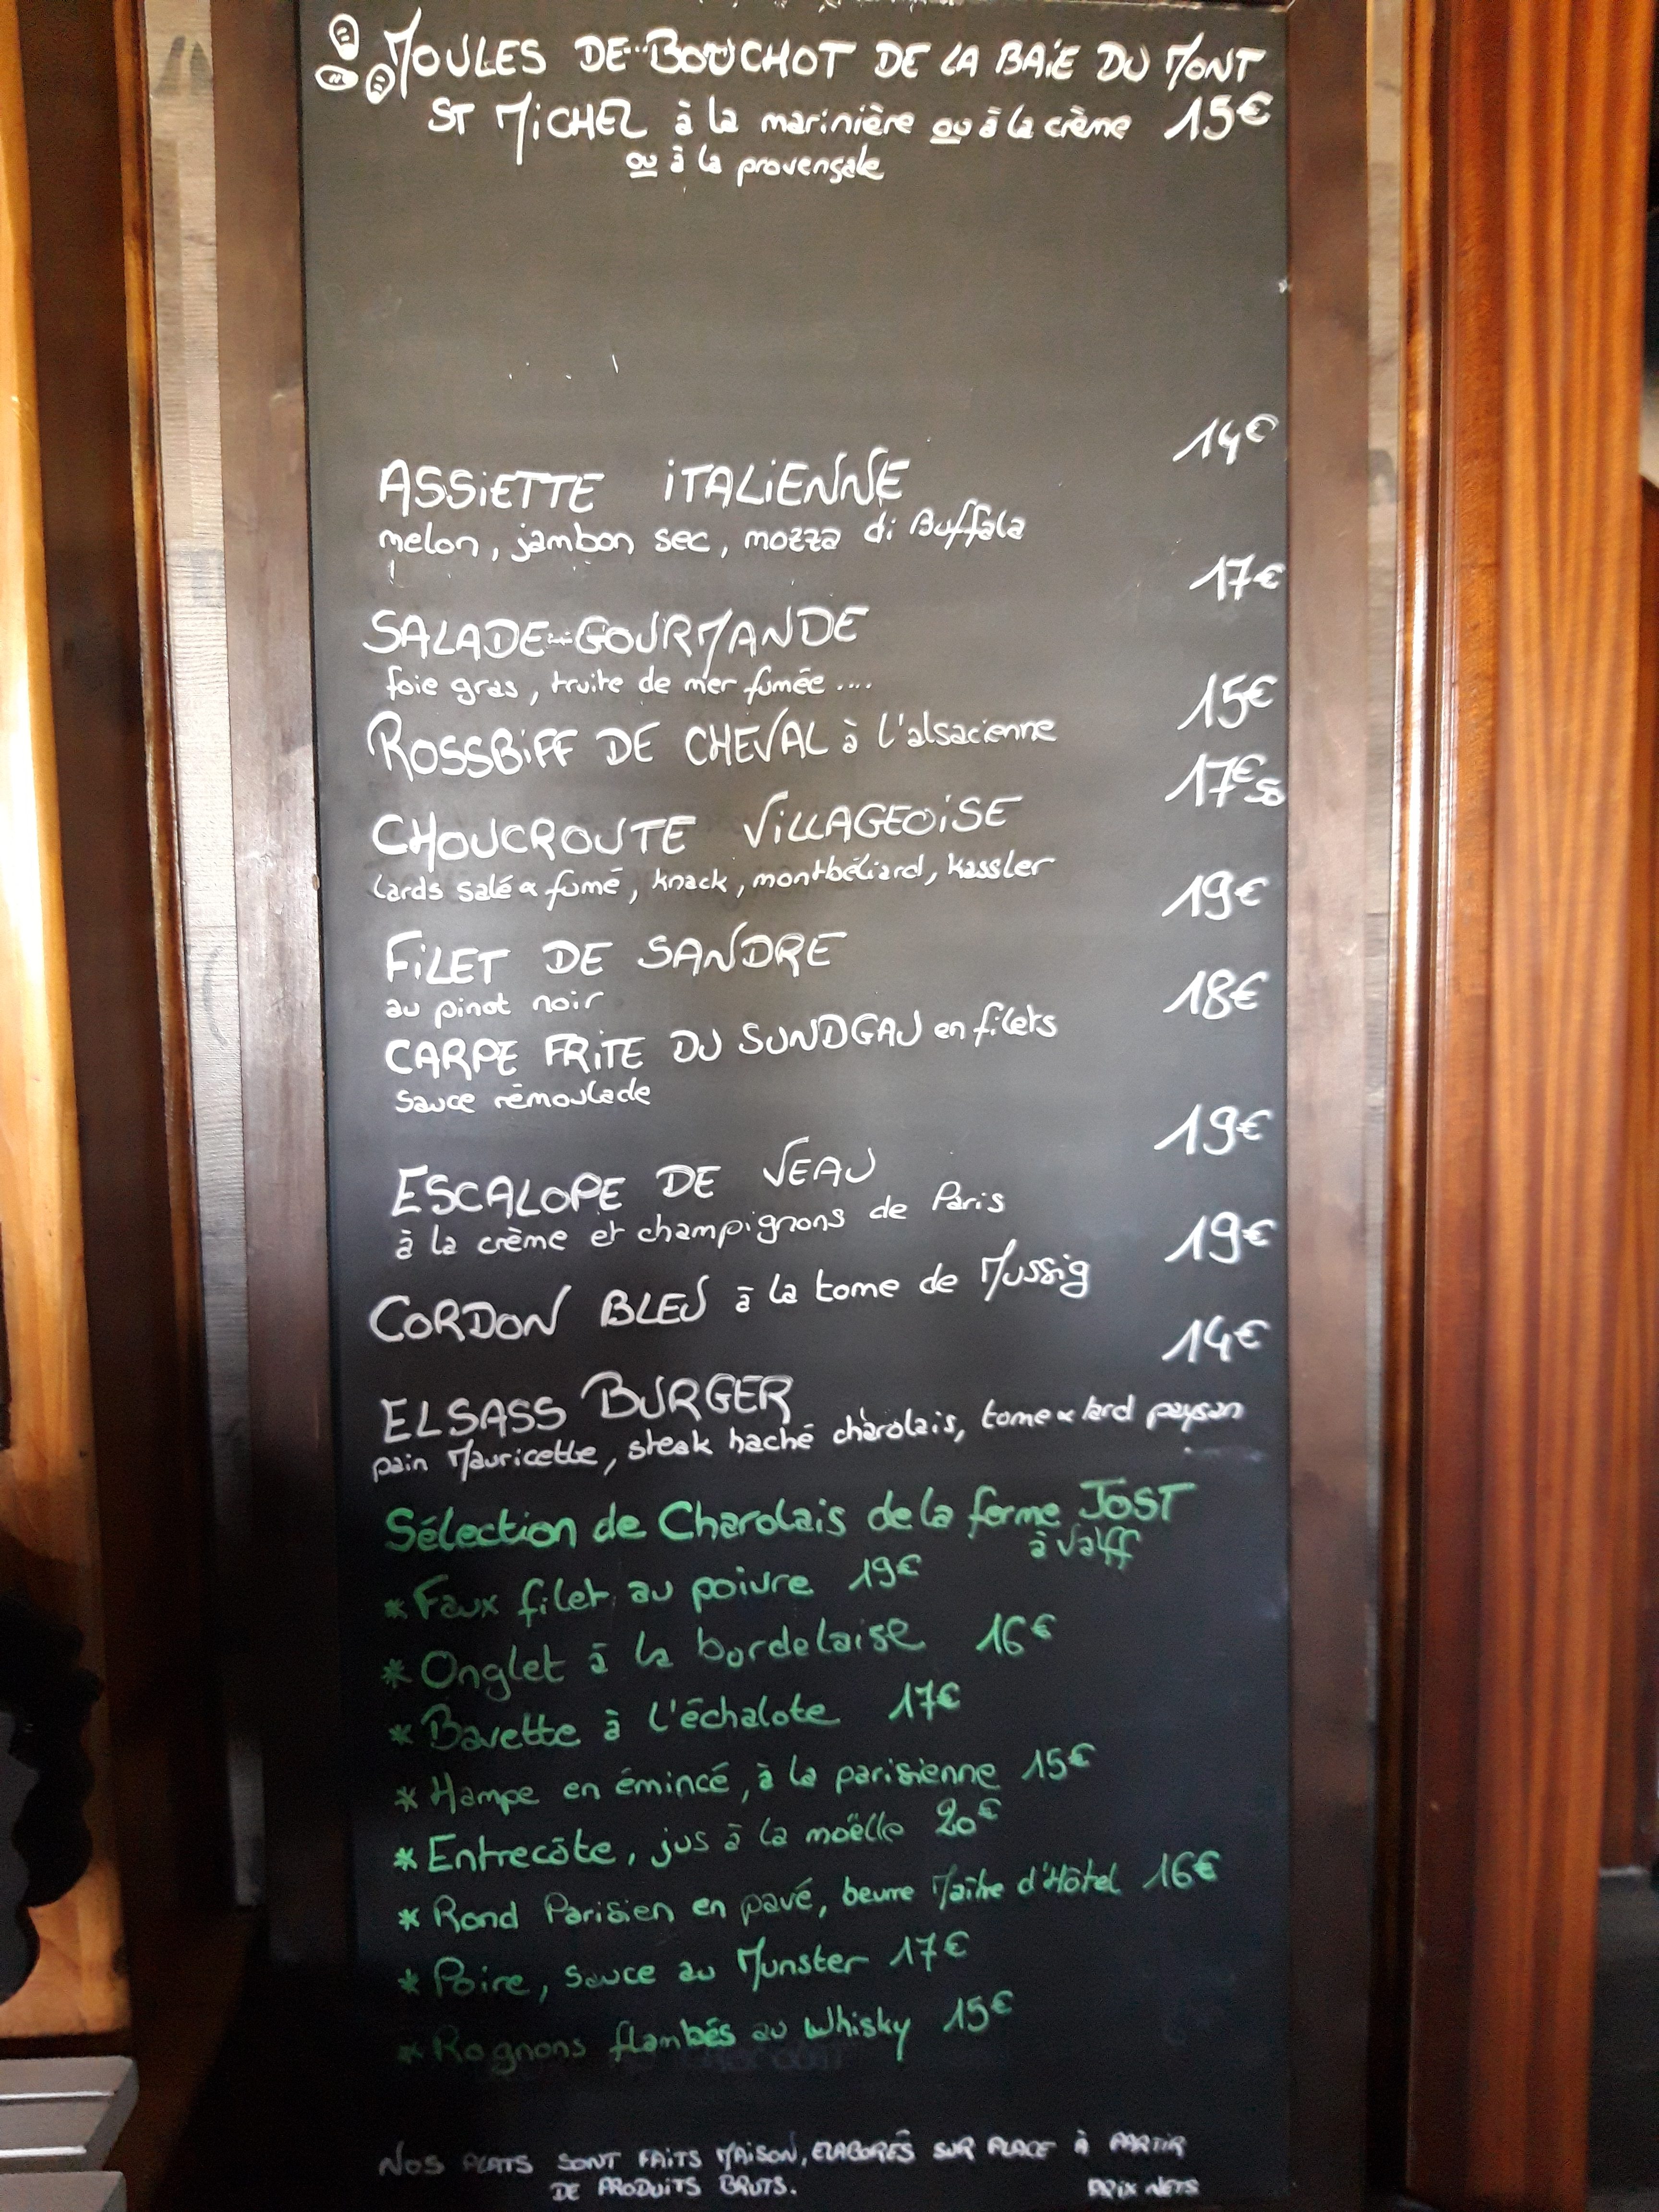 MOULES DE BOUCHOT DE LA BAiE DU MONT
ST MiCHEL à la marinière ou à la crème 15€
ou à la provençale
14€
ASSiETTE iTALiENNE
melon, jambon sec, mozza di Buffala
17€
SALADE GOURMANDE
foie gras, truite de mer fumée ....
15€
ROSSBiFF DE CHEVAL à l'alsacienne
17€50
CHOUCROUTE ViLLAGEOiSE
Lards salé & fumé, knack, montbéliard, kassler
19€
FiLET DE SANDRE
au pinot noir
18€
CARPE FRiTE DU SUNDGAU en filets
sauce rémoulade
19€
ESCALOPE DE VEAU
à la crème et champignons de Paris
19€
CORDON BLEU à la tome de Mussig
14€
ELSASS BURGER
pain Mauricette, steak haché charolais, tome & lard paysan
Sélection de Charolais de la ferme JOST
à Valff
* Faux filet au poivre 19€
* Onglet à la bordelaise 16€
* Bavette à l'échalote 17€
* Hampe en émincé, à la parisienne 15€
* Entrecôte, jus à la moëlle 20€
* Rond Parisien en pavé, beurre Maître d'Hôtel 16€
* Poire, sauce au Munster 17€
* Rognons flambés au Whisky 15€
NOS PLATS SONT FAiTS MAiSON, ELABORÉS SUR PLACE À PARTiR
DE PRODUiTS BRUTS. PRiX NETS